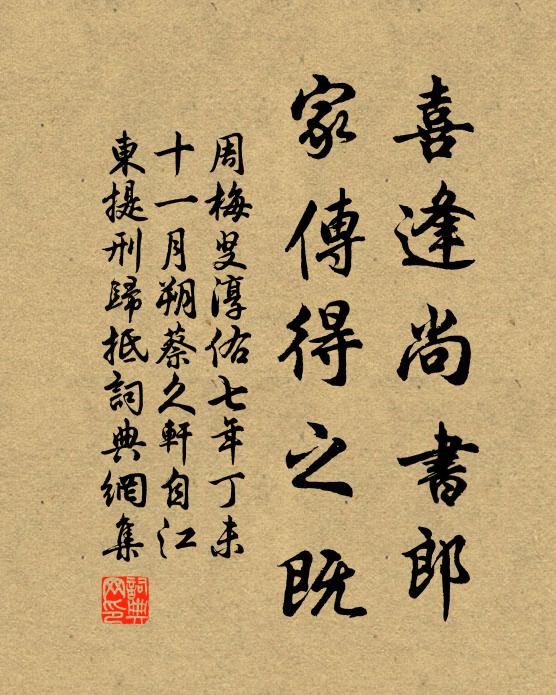 喜逢尚書郎
家傳得之既
周梅叟淳佑七年丁未
十一月朔蔡久軒自江
東提刑歸抵詞典網集
詞典網印